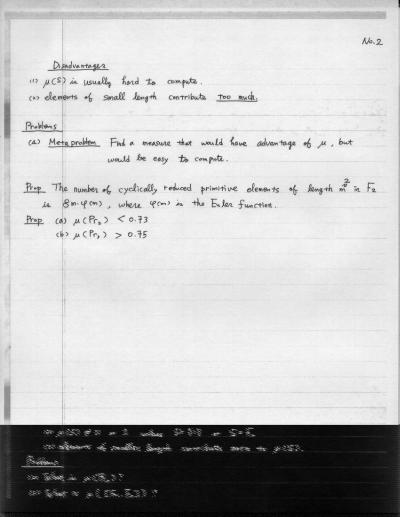 No. 2
Disadvantages
(1) μ(S) is usually hard to compute.
(2) elements of small length contribute too much.
Problems
(a) Metaproblem Find a measure that would have advantage of μ, but
would be easy to compute.
Prop The number of cyclically reduced primitive elements of length m² in F₂
is 8m·φ(m), where φ(m) is the Euler function.
Prop (a) μ(Pr₂) < 0.73
(b) μ(Pr₃) > 0.75
elements of smaller length contribute more to μ(S).
Problems